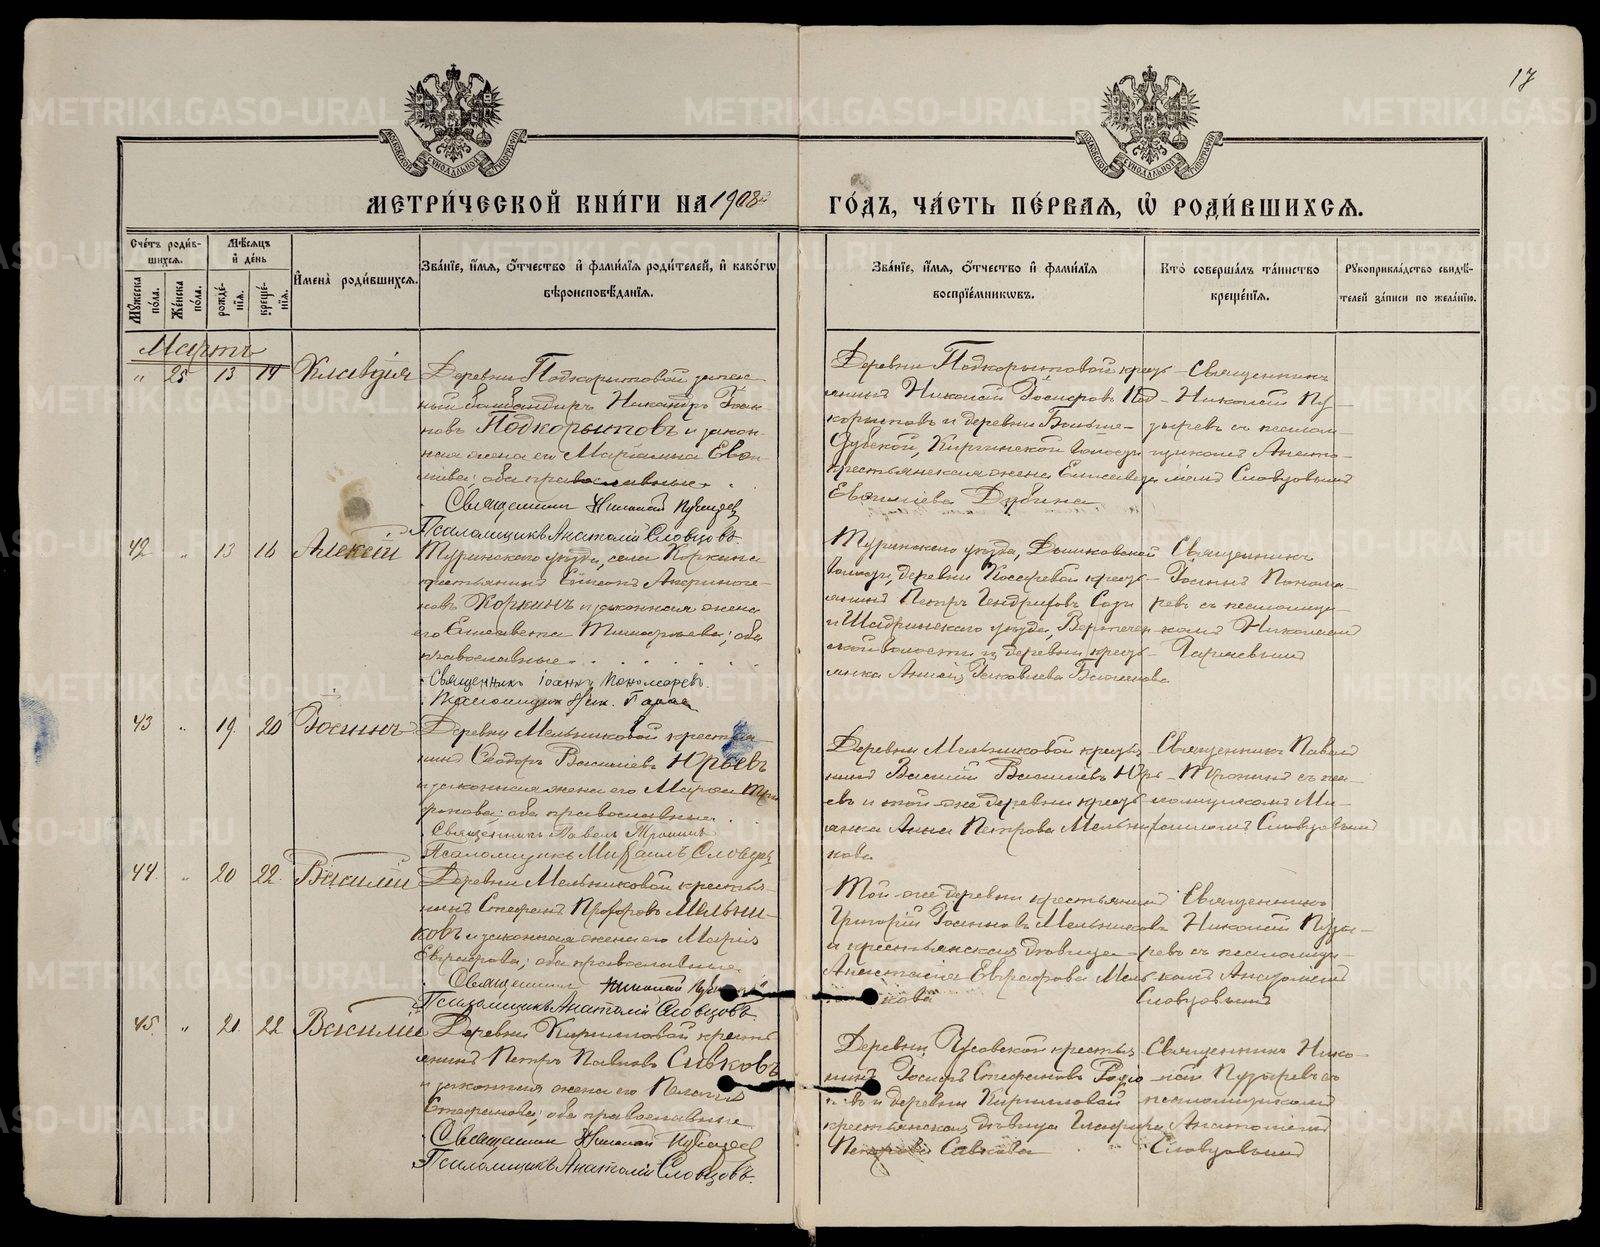 17
МЕТРИ́ЧЕСКОЙ КНИ́ГИ НА 1908й
ГО́ДЪ, ЧА́СТЬ ПЕ́РВАЯ, Ѡ РОДИ́ВШИХСЯ.
Сче́тъ роди́в-
шихся.
Му́жеска
по́ла.
Же́нска
по́ла.
Мѣ́сяцъ
и де́нь
рожде́-
нїя.
креще́-
нїя.
И́мена̀ роди́вшихся.
Зва́нїе, и́мя, о́тчество и фами́лїя роди́телей, и како́гѡ
вѣроисповѣ́данїя.
Зва́нїе, и́мя, о́тчество и фами́лїя
воспрїе́мникѡвъ.
Кто̀ соверша́лъ та́инство
креще́нїя.
Рꙋкоприкла́дство свидѣ́-
телей за́писи по жела́нїю.
Мартъ
" 25 13 14 Клавдія
Деревни Подкорытовой запас-
ный бомбандиръ Никандръ Іоан
новъ Подкорытовъ и закон-
ная жена его Маріамна Евѳи-
міева; оба православные.
Священникъ Николай Пузыревъ
Псаломщикъ Анатолій Словцовъ.
Деревни Подкорытовой крестъ-
янинъ Николай Іосифовъ Под-
корытовъ и деревни Больше-
Дубской, Киргинской волости
крестьянская жена Елисавета
Евѳиміева Дубина
Священникъ
Николай Пу-
зыревъ съ псалом-
щикомъ Анато-
ліемъ Словцовымъ
42 " 13 16 Алексій
Туринскаго уѣзда, села Коркина
крестьянинъ Симеонъ Андроник-
новъ Коркинъ и законная жена
его Елисавета Тимофеева; оба
православные.
Священникъ Іоаннъ Пономаревъ.
Псаломщикъ Ник.
Туринскаго уѣзда, Волости, деревни
янинъ Петръ
и Шадринскаго уѣзда,
волости деревни кресть-
янка Анна Іаковлева
Священникъ
Іоаннъ Понома-
ревъ съ псаломщи-
комъ Николаемъ
43 " 19 20 Іоаннъ
Деревни Мельниковой крестья-
нинъ Ѳеодоръ Васильевъ Юрьевъ
и законная жена его Марѳа Три
фонова; оба православные.
Священникъ Павелъ Тронинъ
Псаломщикъ Михаилъ Словцовъ
Деревни Мельниковой кресть-
нинъ Василій Васильевъ Юрь-
евъ и той-же деревни кресть-
янка Анна Петрова Мельни-
кова
Священникъ Павелъ
Тронинъ съ пса-
ломщикомъ Ми-
хаиломъ Словцовымъ
44 " 20 22 Василій
Деревни Мельниковой крестья-
нинъ Стефанъ Прохоровъ Мельни-
ковъ и законная жена его Марія
Евграфова; оба православные.
Священникъ Николай Пузыревъ
Псаломщикъ Анатолій Словцовъ
Той-же деревни крестьянинъ
Григорій Іоанновъ Мельниковъ
и крестьянская дѣвица
Анастасія Евграфова Мель
кова
Священникъ
Николай Пузы-
ревъ съ псаломщи-
комъ Анатоліемъ
Словцовымъ
45 " 21 22 Василій
Деревни Кирилловой кресть
янинъ Петръ Павловъ Сивковъ
и законная жена его Пелагія
Стефанова; оба православные
Священникъ Николай Пузыревъ
Псаломщикъ Анатолій Словцовъ.
Деревни Чусовской крестья
нинъ Іосифъ Стефановъ Родіо
новъ и деревни Кирилловой
крестьянская дѣвица Глафира
Петрова Сивкова
Священникъ Нико-
лай Пузыревъ съ
псаломщикомъ
Анатоліемъ
Словцовымъ
METRIKI.GASO-URAL.RU